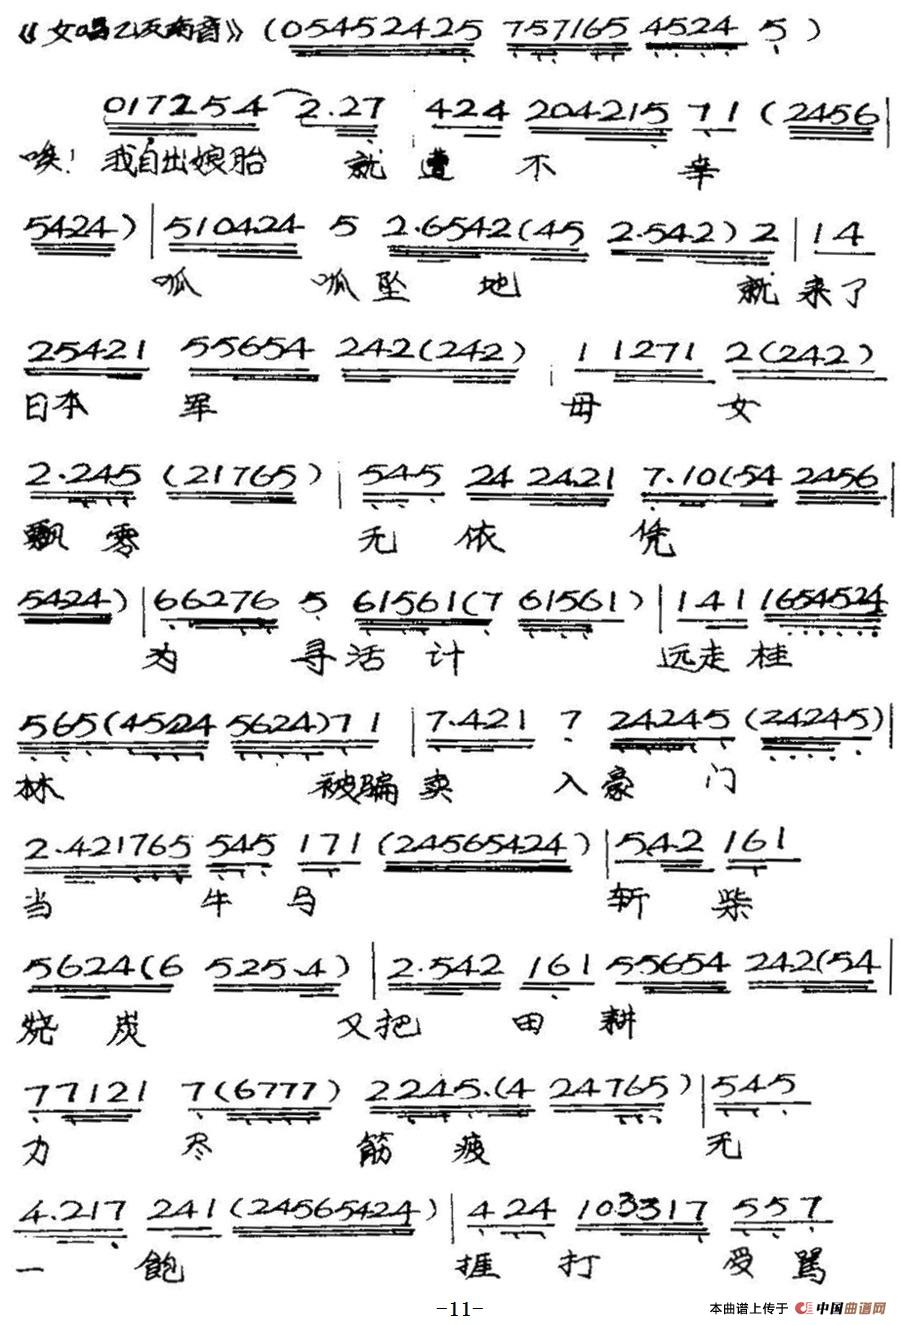 《女唱乙反南音》(05452425 757165 4524 5)
017254 2.27 | 424 204215 71 (2456 |
唉！我自出娘胎 就遭 不 辛
5424) | 510424 5 2.6542(45 2.542) 2 | 14
呱 呱坠 地 就来了
25421 55654 242(242) | 1 1271 2(242)
日本 军 母 女
2.245 (21765) | 545 24 2421 7.10(54 2456 |
飘零 无 依 凭
5424) | 66276 5 61561(7 61561) | 141 1654524
为 寻活 计 远走桂
565(4524 5624)71 | 7.421 7 24245 (24245) |
林 被骗卖 入豪 门
2.421765 545 171 (24565424) | 542 161
当 牛 马 斩 柴
5624(6 525.4) | 2.542 161 55654 242(54 |
烧 炭 又把 田 耕
77121 7(6777) 2245.(4 24765) | 545
力 尽 筋 疲 无
4.217 241 (24565424) | 424 103317 557
一 飽 捱 打 受 骂
-11-
本曲谱上传于 中国曲谱网